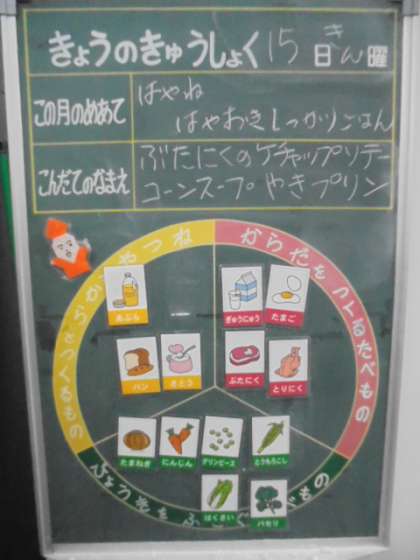 きょうのきゅうしょく 15日 きん曜
この月のめあて
はやね
はやおきしっかりごはん
こんだてのなまえ
ぶたにくのケチャップソテー
コーンスープ やきプリン
ねつや
ちからをつくるもの
からだをつくるたべもの
あぶら
パン
さとう
ぎゅうにゅう
たまご
ぶたにく
とりにく
たまねぎ
にんじん
グリンピース
とうもろこし
はくさい
パセリ